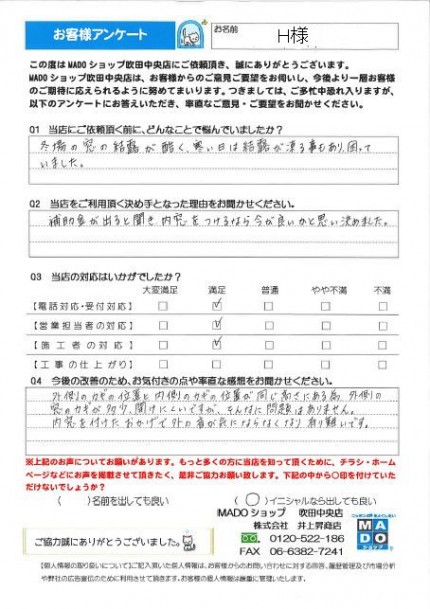 お客様アンケート
お名前
H様
この度はMADOショップ吹田中央店にご依頼頂き、誠にありがとうございます。
MADOショップ吹田中央店は、お客様からのご意見ご要望をお伺いし、今後より一層お客様
のご期待に応えられるように努めてまいります。つきましては、ご多忙中恐れ入りますが、
以下のアンケートにお答えいただき、率直なご意見・ご要望をお聞かせください。
Q1 当店にご依頼頂く前に、どんなことで悩んでいましたか?
冬場の窓の結露が酷く、寒い日は結露が凍る事もあり、困って
いました。
Q2 当店をご利用頂く決め手となった理由をお聞かせください。
補助金が出ると聞き、内窓をつけるなら今が良いかと思い決めました。
Q3 当店の対応はいかがでしたか?
大変満足 満足 普通 やや不満 不満
【電話対応・受付対応】 □ ☑ □ □ □
【営業担当者の対応】 □ ☑ □ □ □
【施工者の対応】 □ ☑ □ □ □
【工事の仕上がり】 □ □ □ □ □
Q4 今後の改善のため、お気付きの点や率直な感想をお聞かせください。
外側のカギの位置と内側のカギの位置が同じ高さにある為、外側の
窓のカギが多少、開けにくいですが、そんなに問題はありません。
内窓を付けたおかげで外の音が気にならなくなり有り難いです。
※上記のお声についてお願いがあります。もっと多くの方に当店を知って頂くために、チラシ・ホーム
ページなどにお声を掲載させて頂きたく、是非ご協力お願い致します。下記の中から○印を付けていた
だけないでしょうか?
( )名前を出しても良い (○)イニシャルなら出しても良い
MADOショップ 吹田中央店
株式会社 井上昇商店
0120-522-186
FAX 06-6382-7241
ご協力誠にありがとうございました。
MADO
ショップ
【個人情報の取り扱いについて】ご記入頂いた個人情報は、お客様からのお問い合わせに対する回答、履歴管理及び市場分析
や弊社の広告宣伝のために利用させて頂きます。お客様の個人情報は厳重に管理いたします。